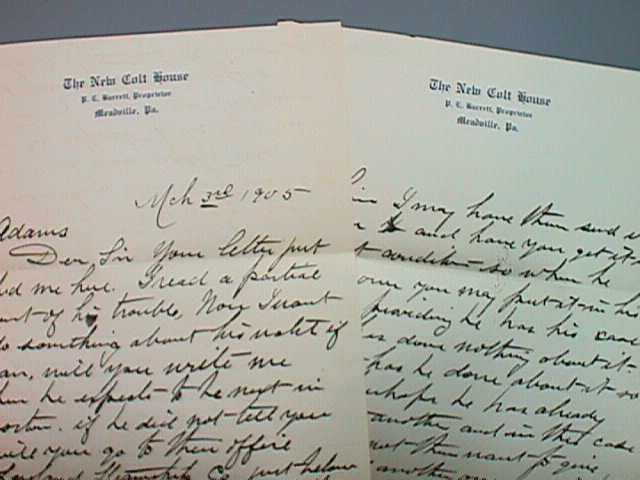 The New Colt House
P. C. Barrett, Proprietor
Meadville, Pa.
Mch 3rd 1905
Adams
Dear Sir Your letter just
me here. I read a partial
of his trouble, Now I want
something about his valet if
will you write me
he expects to be next in
if he did not tell you
will you go to their office
Steamship Co. just below
The New Colt House
P. C. Barrett, Proprietor
Meadville, Pa.
I may have them send
and have you get it
condition so when he
you may put it in his
providing he has his case
done nothing about it-
has he done about it so
perhaps he has already
another and in this case
not then want to give
another